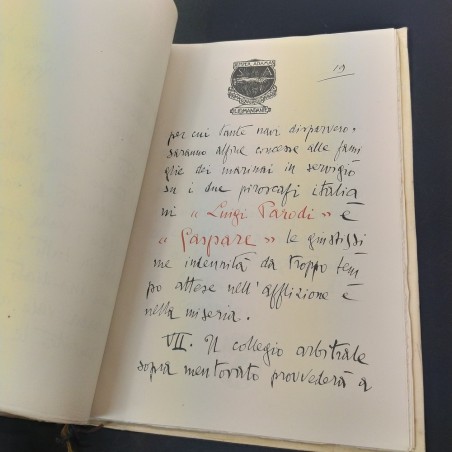 19
per cui tante navi disparvero,
saranno alfine concesse alle fami
glie dei marinai in servigio
su i due piroscafi italia
ni « Luigi Parodi » e
« Gaspare » le giustissi
me indennità da troppo tem
po attese nell'afflizione e
nella miseria.
VII. Il collegio arbitrale
sopra mentovato provvederà a